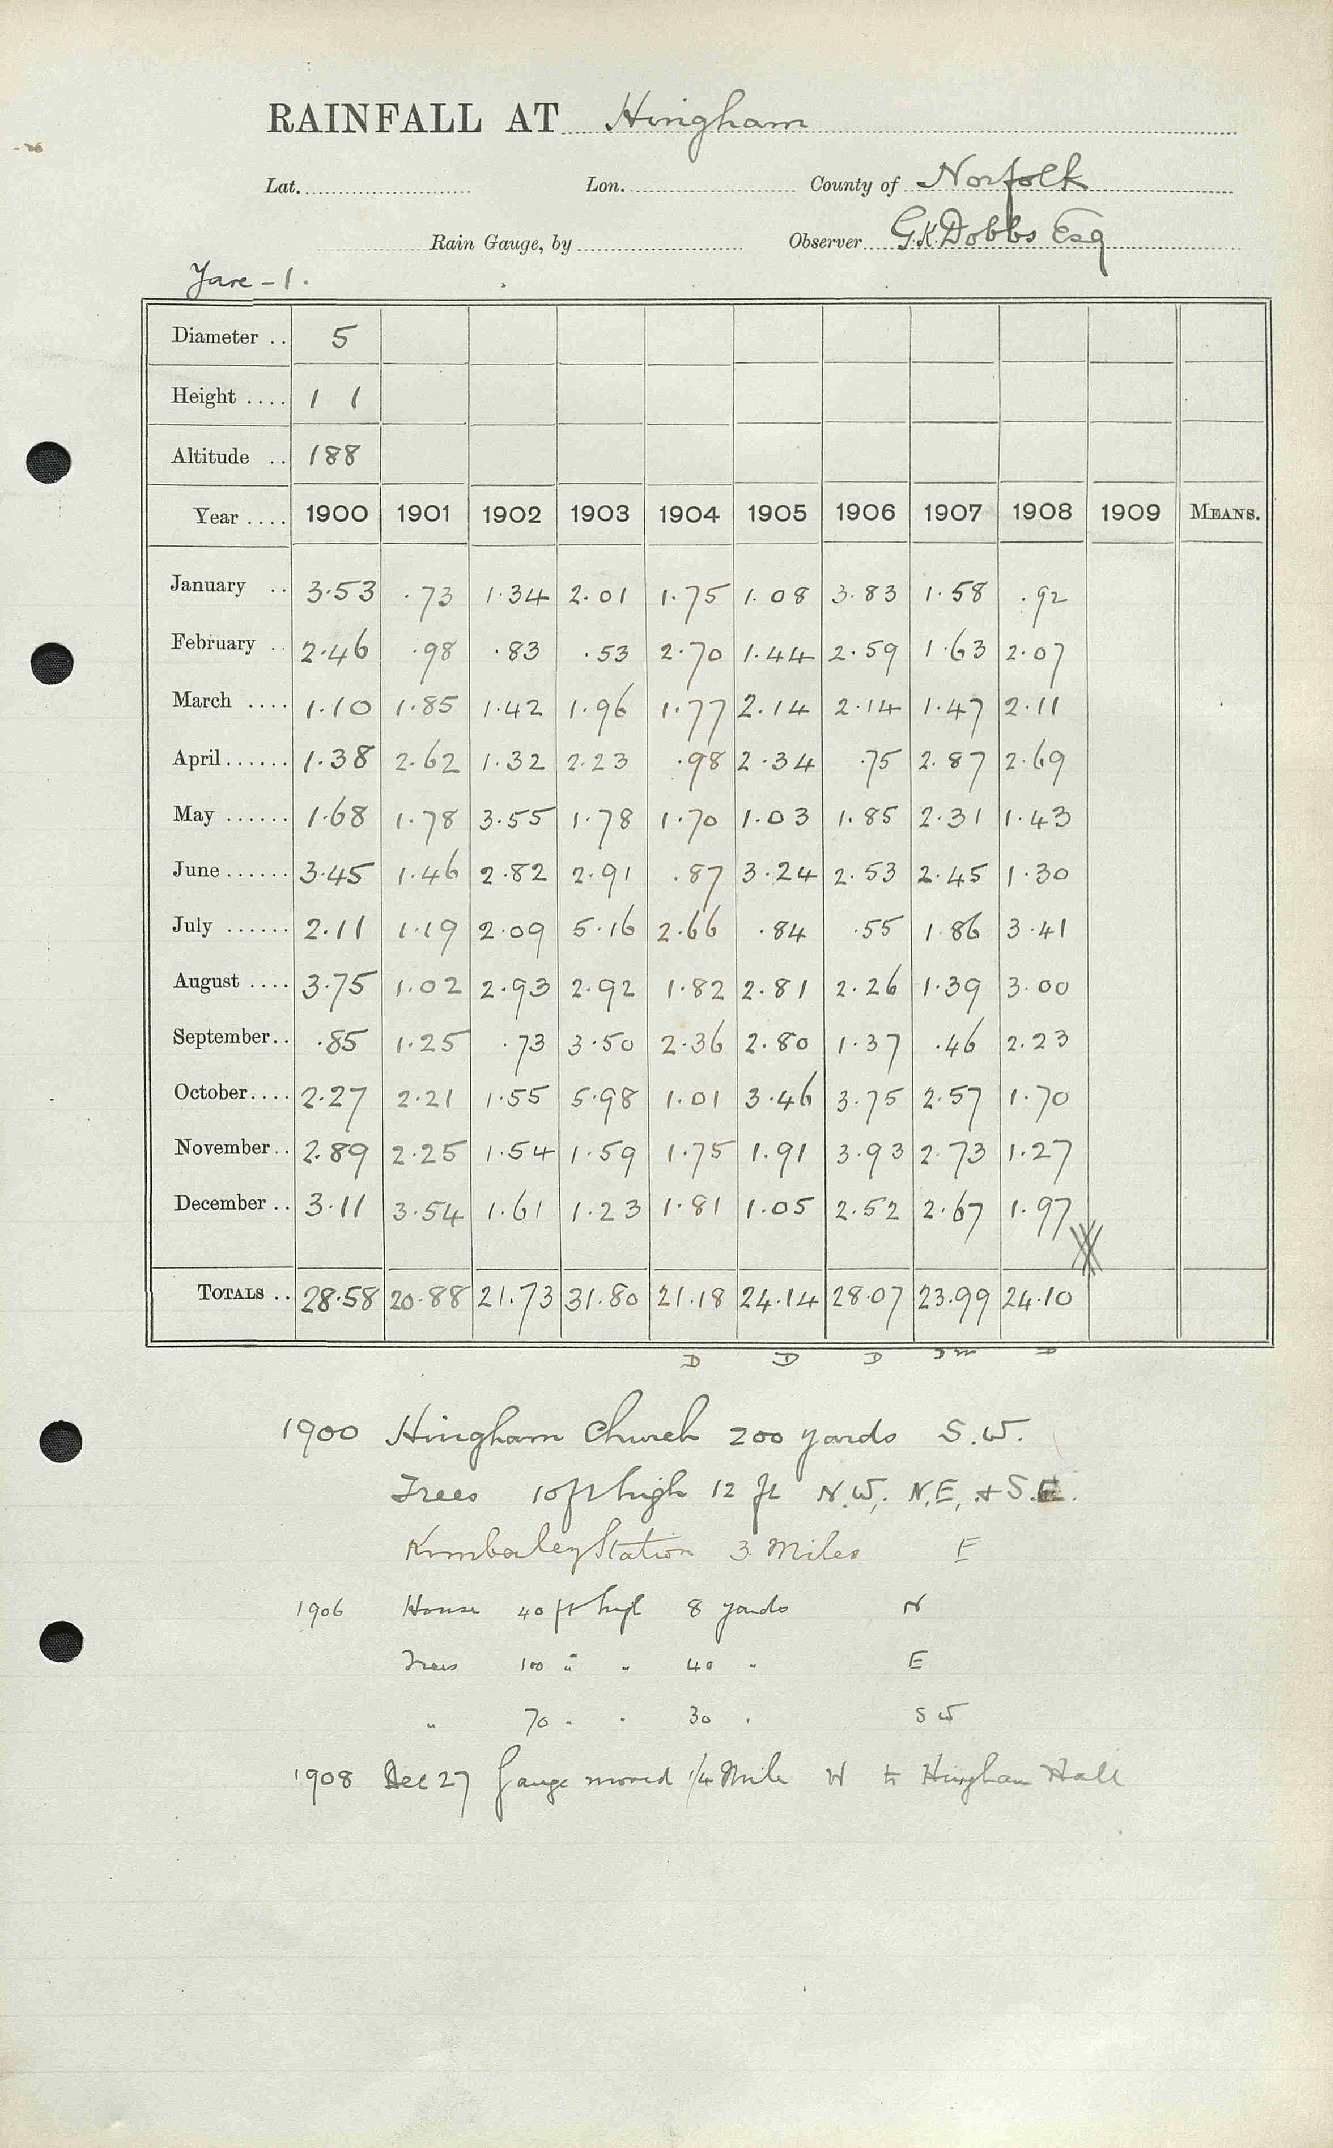 RAINFALL AT Hingham
Lat. Lon. County of Norfolk
Rain Gauge, by Observer G.K. Dobbs Esq
Yare - 1.
Diameter .. 5
Height .... 1 1
Altitude .. 188
Year .... 1900 1901 1902 1903 1904 1905 1906 1907 1908 1909 MEANS.
January .. 3.53 .73 1.34 2.01 1.75 1.08 3.83 1.58 .92
February .. 2.46 .98 .83 .53 2.70 1.44 2.59 1.63 2.07
March .... 1.10 1.85 1.42 1.96 1.77 2.14 2.14 1.47 2.11
April...... 1.38 2.62 1.32 2.23 .98 2.34 .75 2.87 2.69
May ...... 1.68 1.78 3.55 1.78 1.70 1.03 1.85 2.31 1.43
June...... 3.45 1.46 2.82 2.91 .87 3.24 2.53 2.45 1.30
July ...... 2.11 1.19 2.09 5.16 2.66 .84 .55 1.86 3.41
August .... 3.75 1.02 2.93 2.92 1.82 2.81 2.26 1.39 3.00
September.. .85 1.25 .73 3.50 2.36 2.80 1.37 .46 2.23
October.... 2.27 2.21 1.55 5.98 1.01 3.46 3.75 2.57 1.70
November.. 2.89 2.25 1.54 1.59 1.75 1.91 3.93 2.73 1.27
December .. 3.11 3.54 1.61 1.23 1.81 1.05 2.52 2.67 1.97
TOTALS .. 28.58 20.88 21.73 31.80 21.18 24.14 28.07 23.99 24.10
D D D Dm D
1900 Hingham Church 200 yards S.W.
Trees 10 ft high 12 ft N.W., N.E, + S.E.
Kimberley Station 3 Miles E
1906 House 40 ft high 8 yards N
Trees 100 " " 40 " E
" 70 " " 30 " SW
1908 Dec 27 Gauge moved 1/4 Mile W to Hingham Hall